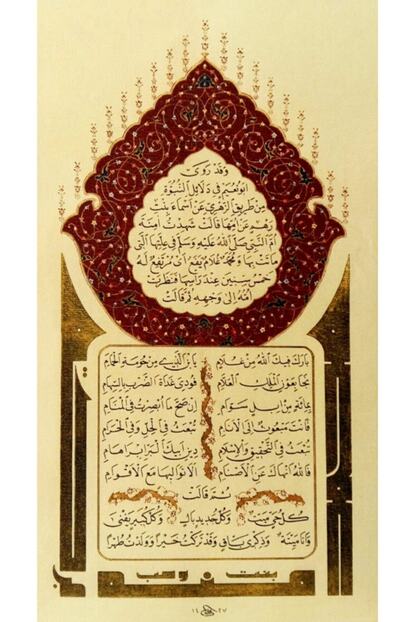 وَقَدْ رَوَى
ابُونُعَيم فِي دَلَائِل النُّبُوَّة
مِن طَرِيقِ الزُّهْرِي عَن أَسْمَاءَ بِنْتِ
رهم عَنْ أُمِّهَا قَالَتْ شَهِدْتُ آمِنَة
أُمَّ النَّبِيِّ صَلَّى اللهُ عَلَيْهِ وَسَلَّم فِي عِلَّتِهَا الَّتِي
مَاتَتْ بِهَا وَمُحَمَّدٌ غُلَامٌ يَفَعٌ أَيْ مُرْتَفِعٌ لَهُ
خَمْسُ سِنِينَ عِنْدَ رَأْسِهَا فَنَظَرَتْ
أُمُّهُ إِلَى وَجْهِهِ ثُمَّ قَالَتْ
بَارَكَ فِيكَ اللهُ مِنْ غُلَامِ يَا بْنَ الَّذِي مِنْ حَوْمَةِ الْحِمَامِ
نَجَا بِعَوْنِ الْمَلِكِ الْعَلَّامِ فُودِيَ غَدَاةَ الضَّرْبِ بِالسِّهَامِ
بِمِائَةٍ مِنْ إِبِلٍ سَوَامِ إِنْ صَحَّ مَا أَبْصَرْتُ فِي الْمَنَامِ
فَأَنْتَ مَبْعُوثٌ إِلَى الْأَنَامِ تُبْعَثُ فِي الْحِلِّ وَفِي الْحَرَامِ
تُبْعَثُ فِي التَّحْقِيقِ وَالْإِسْلَامِ دِينِ أَبِيكَ الْبَرِّ إِبْرَاهَامِ
فَاللهُ أَنْهَاكَ عَنِ الْأَصْنَامِ أَلَّا تُوَالِيهَا مَعَ الْأَقْوَامِ
ثُمَّ قَالَتْ
كُلُّ حَيٍّ مَيِّتٌ وَكُلُّ جَدِيدٍ بَالٍ وَكُلُّ كَبِيرٍ يَفْنَى
وَأَنَا مَيِّتَةٌ وَذِكْرِي بَاقٍ وَقَدْ تَرَكْتُ خَيْرًا وَوَلَدْتُ طُهْرًا
بنت وهب
١٤٢٧